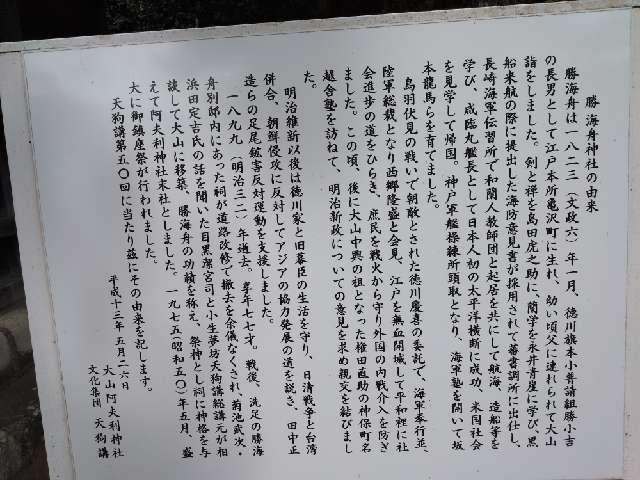 勝海舟神社の由来
勝海舟は一八二三（文政六）年一月、徳川旗本小普請組勝小吉
の長男として江戸本所亀沢町に生れ、幼い頃父に連れられて大山
詣をしました。剣と禅を島田虎之助に、蘭学を永井青崖に学び、黒
船来航の際に提出した海防意見書が採用されて蕃書調所に出仕し、
長崎海軍伝習所で和蘭人教師団と起居を共にして航海、造船等を
学び、咸臨丸艦長として日本人初の太平洋横断に成功、米国社会
を見学して帰国。神戸軍艦操練所頭取となり、海軍塾を開いて坂
本龍馬らを育てました。
鳥羽伏見の戦いで朝敵とされた徳川慶喜の委託で、海軍奉行並、
陸軍総裁となり西郷隆盛と会見、江戸を無血開城して平和裡に社
会進歩の道をひらき、庶民を戦火から守り外国の内戦介入を防ぎ
ました。この頃、後に大山中興の祖となった権田直助の神保町名
越舎塾を訪ねて、明治新政についての意見を求め親交を結びまし
た。
明治維新以後は徳川家と旧幕臣の生活を守り、日清戦争と台湾
併合、朝鮮侵攻に反対してアジアの協力発展の道を説き、田中正
造らの足尾鉱害反対運動を支援しました。
一八九九（明治三二）年逝去。享年七七才。戦後、洗足の勝海
舟別邸内にあった祠が道路改修で撤去を余儀なくされ、菊池武次・
浜田定吉氏の話を聞いた目黒潔宮司と小生夢坊天狗講総講元が相
談して大山に移築、勝海舟の功績を称え、祭神とし祠に神格を与
えて阿夫利神社末社としました。一九七五（昭和五〇）年五月、盛
大に御鎮座祭が行われました。
天狗講第五〇回に当たり茲にその由来を記します。
平成十三年五月二六日
大山阿夫利神社
文化集団 天狗講